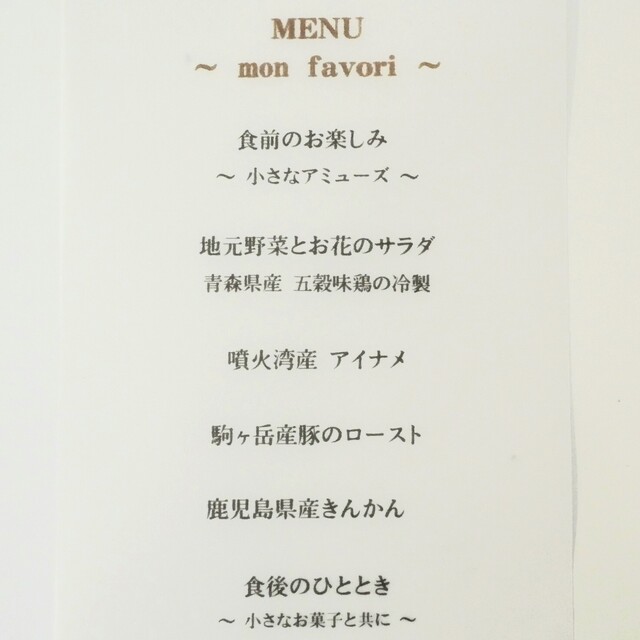 MENU
～ mon favori ～
食前のお楽しみ
～ 小さなアミューズ ～
地元野菜とお花のサラダ
青森県産 五穀味鶏の冷製
噴火湾産 アイナメ
駒ヶ岳産豚のロースト
鹿児島県産きんかん
食後のひととき
～ 小さなお菓子と共に ～